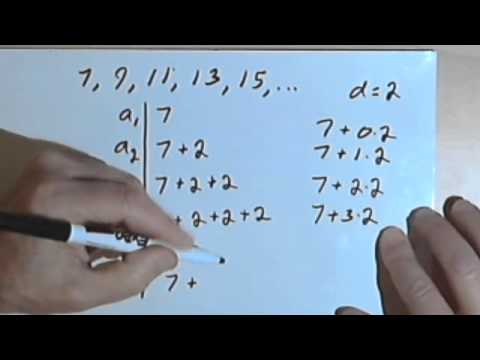 7, 9, 11, 13, 15, ...
d = 2
a₁ 7 7 + 0·2
a₂ 7 + 2 7 + 1·2
7 + 2 + 2 7 + 2·2
+ 2 + 2 + 2 7 + 3·2
7 +